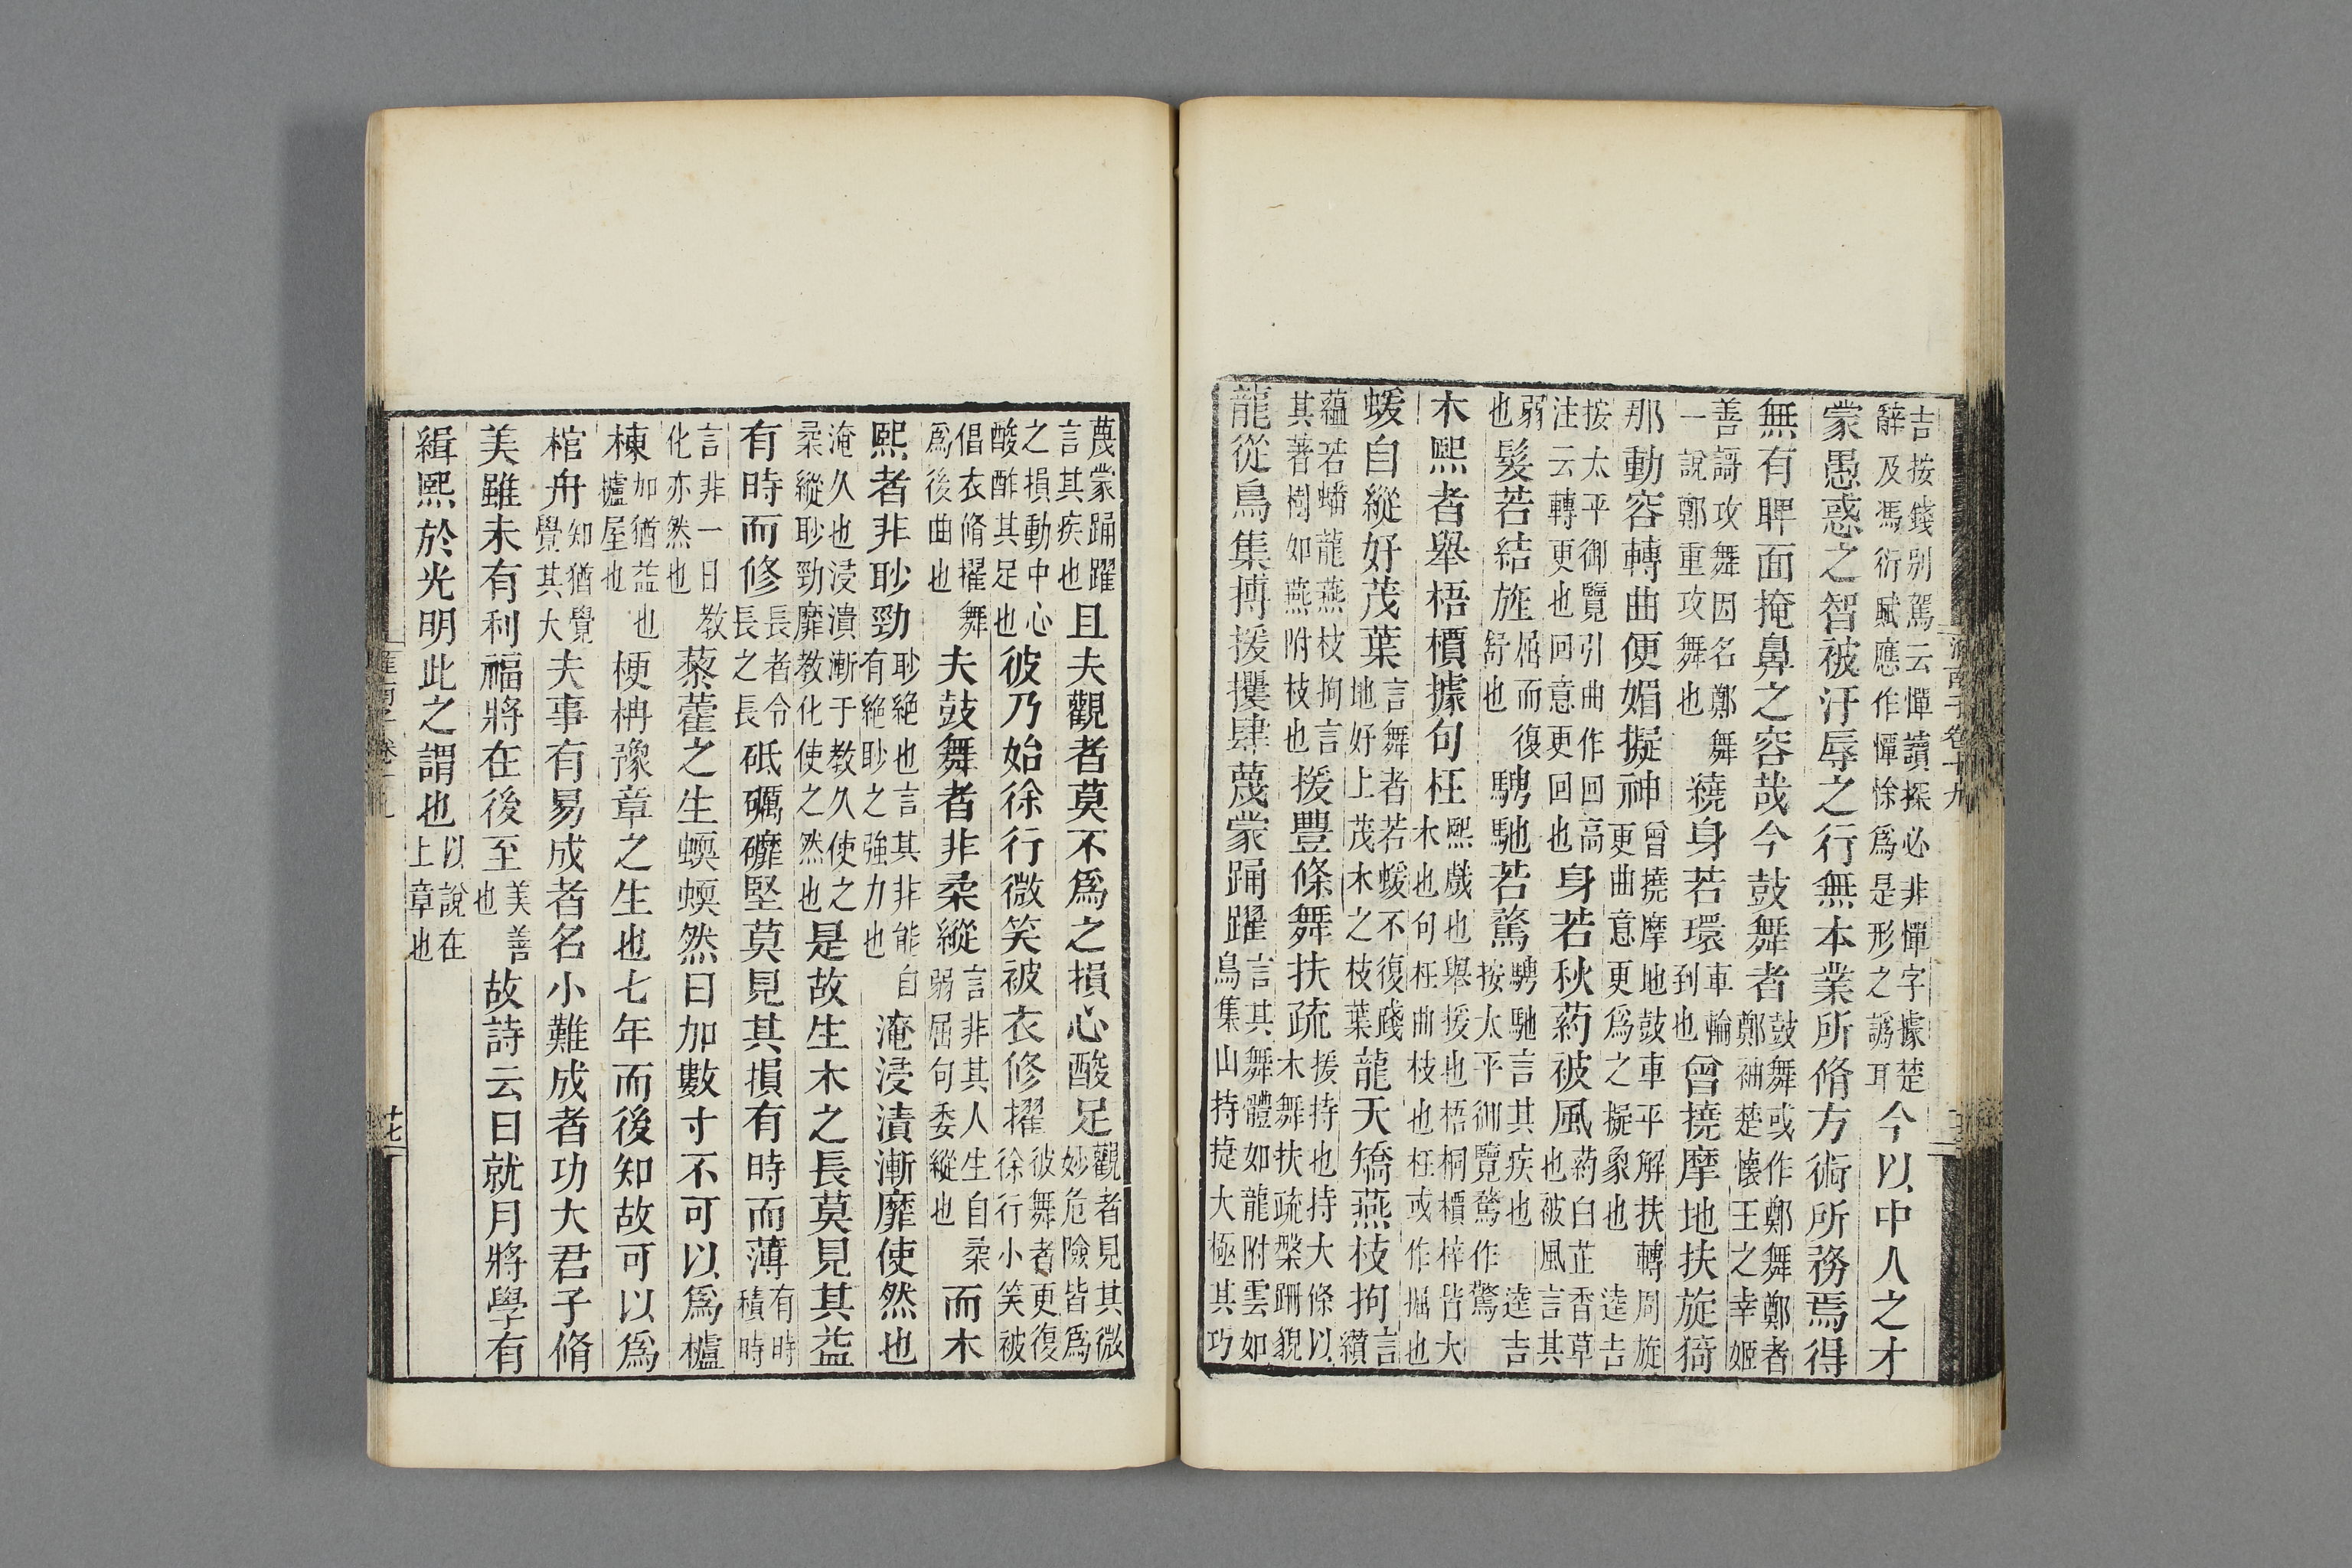 淮南子卷十九
吉按錢別駕云憚讀探必非憚字據楚辭及馮衍賦應作憛悇爲是形之譌耳今以中人之才
蒙愚惑之智被汙辱之行無本業所脩方術所務焉得
無有睥面掩鼻之容哉今鼓舞者鼓舞或作鄭舞鄭者鄭袖楚懷王之幸姬
善謌攻舞因名鄭舞一說鄭重攻舞也繞身若環車輪到也曾撓摩地扶旋猗
那動容轉曲便媚擬神曾撓摩地鼓車平解扶轉周旋更曲意更爲之擬象也逵吉
按太平御覽引曲作回高注云轉更也回意更回也身若秋葯被風葯白芷香草也被風言其
弱也髮若結旌屈而復舒也騁馳若騖騁馳言其疾也逵吉按太平御覽騖作驚
木熙者舉梧檟據句枉熙戲也舉援也梧桐檟梓皆大木也句枉曲枝也枉或作掘也
蝯自縱好茂葉言舞者若蝯不復踐地好上茂木之枝葉龍夭矯燕枝拘言纘
蘊若蟠龍燕枝拘言其著樹如燕附枝也援豐條舞扶疏援持也持大條以木舞扶疏槃跚貌
龍從鳥集搏援攫肆蔑蒙踊躍言其舞體如龍附雲如鳥集山持捷大極其巧
蔑蒙踊躍言其疾也且夫觀者莫不爲之損心酸足觀者見其微妙危險皆爲
之損動中心酸酢其足也彼乃始徐行微笑被衣修擢彼舞者更復徐行小笑被
倡衣脩擢舞爲後曲也夫鼓舞者非柔縱言非其人生自柔弱屈句委縱也而木
熙者非眇勁眇絕也言其非能自有絕眇之強力也淹浸漬漸靡使然也
淹久也浸漬漸于教久使之柔縱眇勁靡教化使之然也是故生木之長莫見其益
有時而修長者令長之長砥礪礳堅莫見其損有時而薄有時積時
言非一日教化亦然也藜藿之生蝡蝡然日加數寸不可以爲櫨
棟加猶益也櫨屋也楩枏豫章之生也七年而後知故可以爲
棺舟知猶覺覺其大夫事有易成者名小難成者功大君子脩
美雖未有利福將在後至美善也故詩云日就月將學有
緝熙於光明此之謂也以說在上章也
廿七